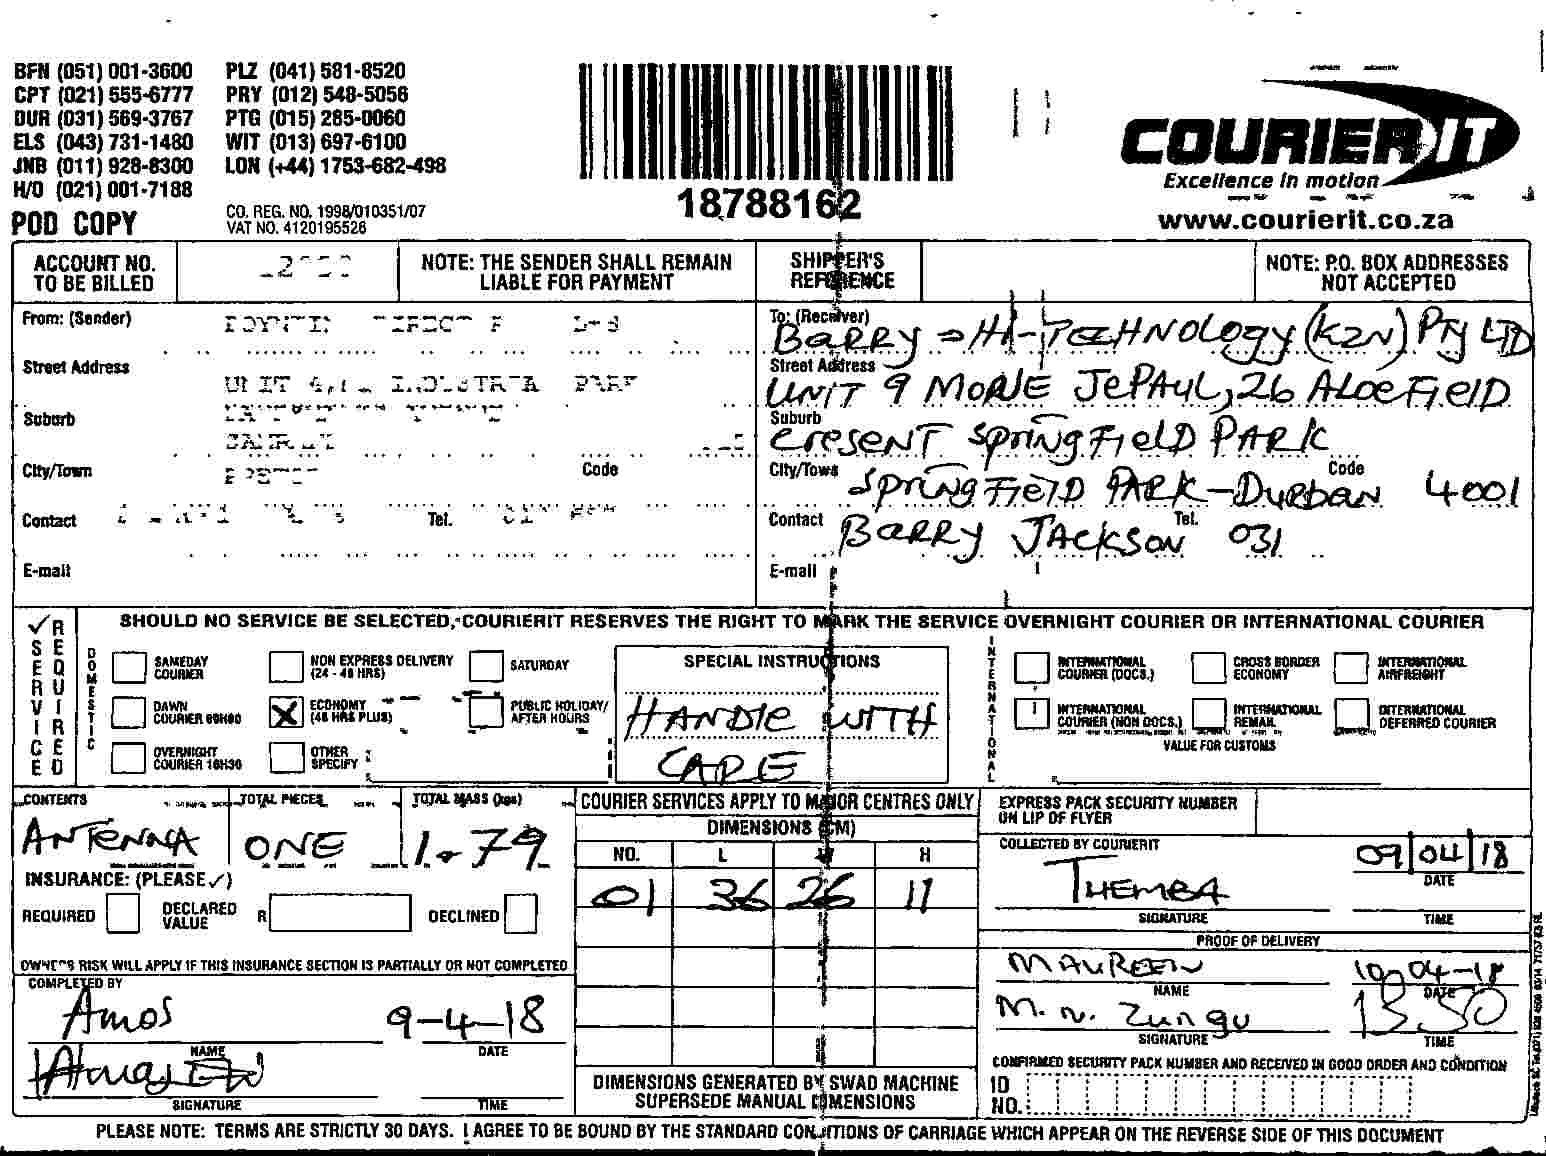 BFN (051) 001-3600 PLZ (041) 581-8520
CPT (021) 555-6777 PRY (012) 548-5056
DUR (031) 569-3767 PTG (015) 285-0060
ELS (043) 731-1480 WIT (013) 697-6100
JNB (011) 928-8300 LON (+44) 1753-682-498
H/O (021) 001-7188
POD COPY
CO. REG. NO. 1998/010351/07
VAT NO. 4120195526
18788162
COURIER IT
Excellence in motion
www.courierit.co.za
ACCOUNT NO.
TO BE BILLED
NOTE: THE SENDER SHALL REMAIN
LIABLE FOR PAYMENT
SHIPPER'S
REFERENCE
NOTE: P.O. BOX ADDRESSES
NOT ACCEPTED
From: (Sender)
Street Address
UNIT
PARK
Suburb
City/Town
Code
Contact
Tel.
E-mail
To: (Receiver)
BARRY HI-TECHNOLOGY (KZN) PTY LTD
Street Address
UNIT 9 MORNE JEPAUL, 26 ALOEFIELD
Suburb
CRESENT SPRINGFIELD PARK
City/Town
Code
SPRINGFIELD PARK-DURBAN 4001
Contact
Tel.
BARRY JACKSON 031
E-mail
✓ SERVICE REQUIRED
SHOULD NO SERVICE BE SELECTED, COURIERIT RESERVES THE RIGHT TO MARK THE SERVICE OVERNIGHT COURIER OR INTERNATIONAL COURIER
DOMESTIC
SAMEDAY
COURIER
NON EXPRESS DELIVERY
(24 - 48 HRS)
SATURDAY
DAWN
COURIER
X ECONOMY
(48 HRS PLUS)
PUBLIC HOLIDAY/
AFTER HOURS
OVERNIGHT
COURIER 10H30
OTHER
SPECIFY
SPECIAL INSTRUCTIONS
HANDLE WITH
CARE
INTERNATIONAL
INTERNATIONAL
COURIER (DOCS.)
CROSS BORDER
ECONOMY
INTERNATIONAL
AIRFREIGHT
INTERNATIONAL
COURIER (NON DOCS.)
INTERNATIONAL
REMAIL
INTERNATIONAL
DEFERRED COURIER
VALUE FOR CUSTOMS
CONTENTS
ANTENNA
TOTAL PIECES
ONE
TOTAL MASS (kgs)
1.79
INSURANCE: (PLEASE ✓)
REQUIRED
DECLARED
VALUE
R
DECLINED
OWNER'S RISK WILL APPLY IF THIS INSURANCE SECTION IS PARTIALLY OR NOT COMPLETED
COMPLETED BY
Amos 9-4-18
NAME DATE
SIGNATURE TIME
COURIER SERVICES APPLY TO MAJOR CENTRES ONLY
DIMENSIONS (CM)
NO. L W H
01 36 26 11
DIMENSIONS GENERATED BY SWAD MACHINE
SUPERSEDE MANUAL DIMENSIONS
EXPRESS PACK SECURITY NUMBER
ON LIP OF FLYER
COLLECTED BY COURIERIT
THEMBA 09/04/18
DATE
SIGNATURE TIME
PROOF OF DELIVERY
MAUREEN 10-04-18
NAME DATE
M. N. Zungu 13 50
SIGNATURE TIME
CONFIRMED SECURITY PACK NUMBER AND RECEIVED IN GOOD ORDER AND CONDITION
ID
NO.
PLEASE NOTE: TERMS ARE STRICTLY 30 DAYS. I AGREE TO BE BOUND BY THE STANDARD CONDITIONS OF CARRIAGE WHICH APPEAR ON THE REVERSE SIDE OF THIS DOCUMENT